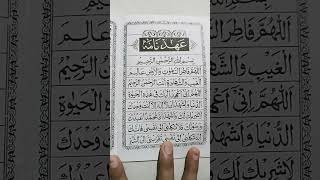 عَهْد نَامَه
بِسْمِ اللهِ الرَّحْمٰنِ الرَّحِيْمِ
اَللّٰهُمَّ فَاطِرَ السَّمٰوٰتِ وَالْاَرْضِ عَالِمَ
الْغَيْبِ وَالشَّهَادَةِ هُوَ الرَّحْمٰنُ الرَّحِيْمُ
اَللّٰهُمَّ اِنِّيْ اَعْهَدُ اِلَيْكَ فِيْ هٰذِهِ الْحَيٰوةِ
الدُّنْيَا وَاَشْهَدُ اَنْ لَّا اِلٰهَ اِلَّا اَنْتَ وَحْدَكَ
لَا شَرِيْكَ لَكَ وَاَشْهَدُ اَنَّ مُحَمَّدًا عَبْدُكَ
وَرَسُوْلُكَ فَلَا تَكِلْنِيْ اِلٰى نَفْسِيْ فَاِنَّكَ
اِنْ تَكِلْنِيْ اِلٰى نَفْسِيْ تُقَرِّبْنِيْ اِلَى الشَّرِّ